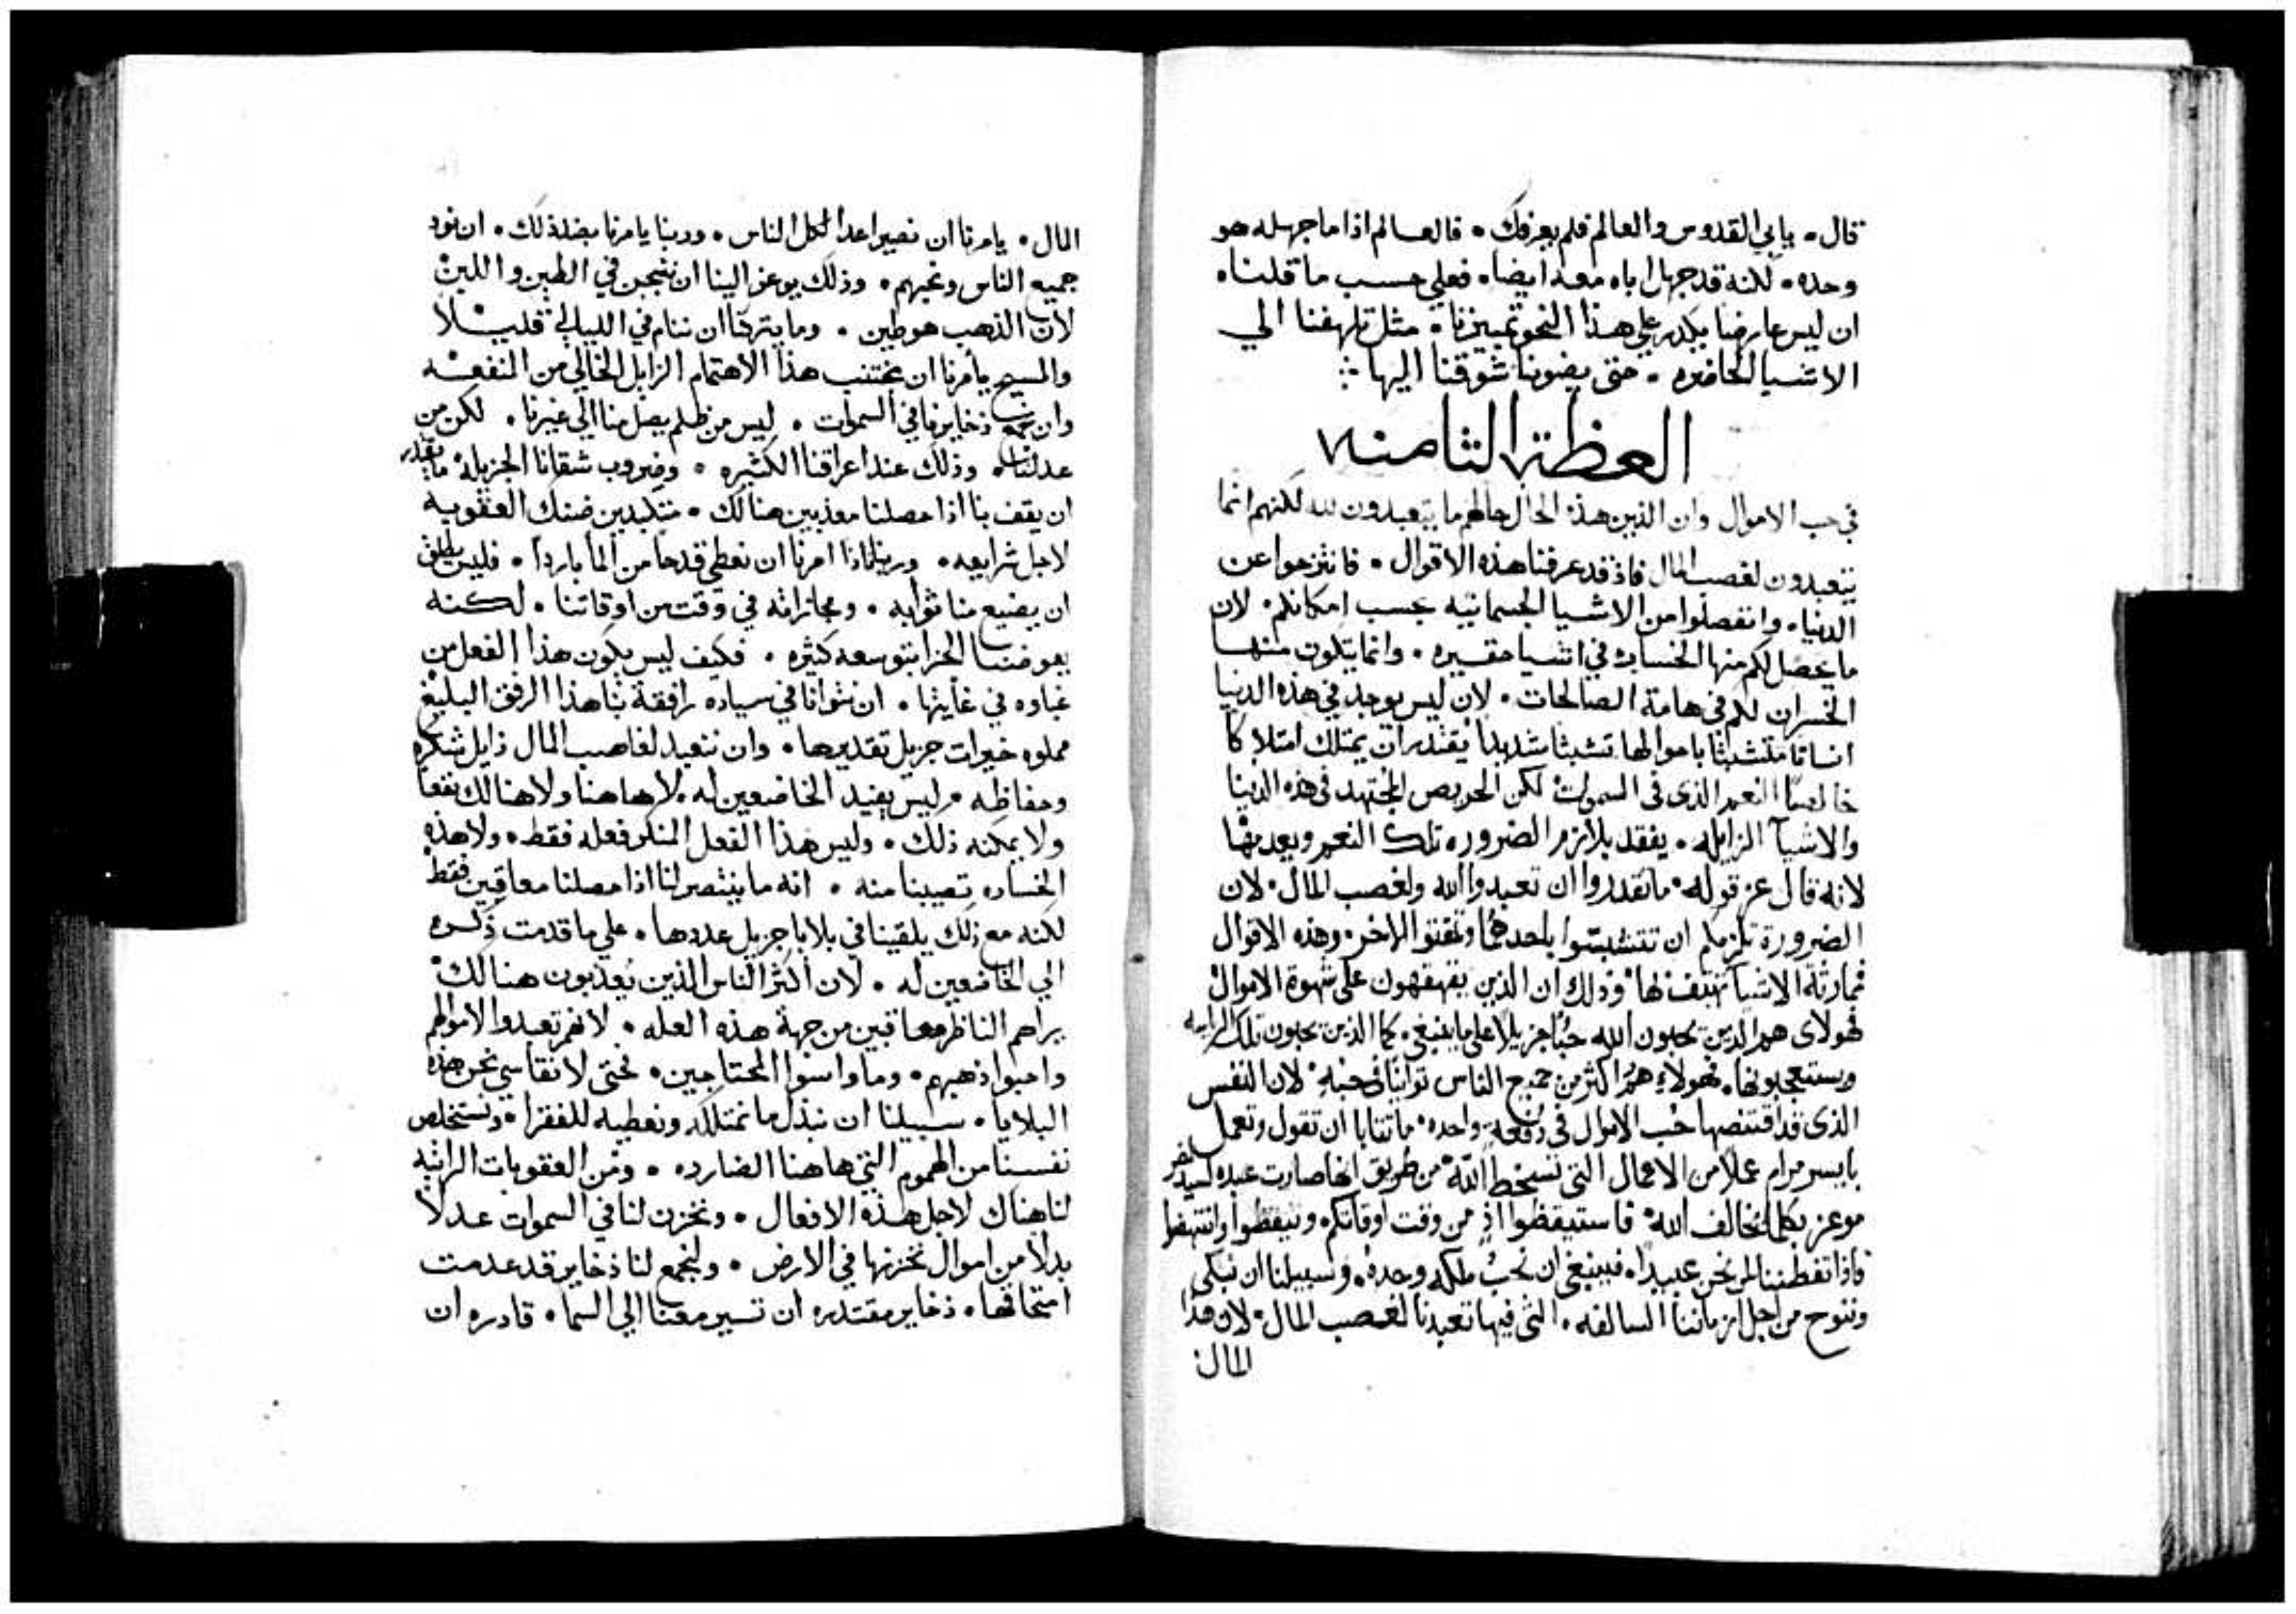 قال. يابي القدوس والعالم فلم يعرفك. فالعالم اذا ما جهله هو
وحده. لكنه قد جهل اباه معه ايضا. فعلي حسب ما قلناه
ان ليس عارضا يكدر علي هذا النحو تمييزنا. مثل تلهفنا الي
الاشيا الحاضره. حتي يضوينا شوقنا اليها
العظة الثامنه
في حب الاموال وان الذين هذه الحال حالهم ما يتعبدون لله لكنهم انما
يتعبدون لغصب المال فاذ قد عرفنا هذه الاقوال. فانتزحوا عن
الدنيا. وانفصلوا من الاشيا الجسمانيه بحسب امكانكم. لان
ما يحصل لكم منها الخساره في اشيا حقيره. وانما يتكون منها
الخسران لكم في هامة الصالحات. لان ليس يوجد في هذه الدنيا
انسانا متشبثا باموالها تشبثا شديدا يقتدر ان يمتلك امتلاكا
خالصا النعم الذي في السموات لكن الحريص المجتهد في هذه الدنيا
والاشيآ الزايله. يفقد بلازم الضروره تلك النعم ويعدمها
لانه قال عز قوله. ما تقدروا ان تعبدوا الله ولغصب المال. لان
الضرورة تلزمكم ان تتشبثوا باحدهما وتمقتوا الاخر. وهذه الاقوال
الاشيآ تهتف لها. وذلك ان الذين يقهقهون على شهوة الاموال
فهولاى هم الذين يحبون الله حبا جزيلا على ما ينبغى. كما الذين يحبون تلك
ويستعجبونها. فهولاء هم اكثر من جميع الناس توانيا فى حبه. لان النفس
الذى قد اقتنصها حب الاموال فى دفعة واحده. ما تتابا ان تقول وتعمل
بايسر مرام عملا من الاعمال التى تسخط الله. من طريق انها صارت عبده لسيد اخر
موعز بكلما يخالف الله. فاستيقظوا اذ من وقت اوقاتكم وتيقظوا وانتهضوا
واذا تفطننا لمن نحن عبيدا. فينبغى ان نحب ملكه وحده. وسبيلنا ان نبكى
وننوح من اجل ازماننا السالفه. التى فيها تعبدنا لغصب المال. لان هذا
المال
المال. يامرنا ان نصير اعدا لكل الناس. وربنا يامرنا بضد ذلك. ان نود
جميع الناس ونحبهم. وذلك يوعز الينا ان نتجبن في الطين واللبن
لان الذهب هو طين. وما يتركنا ان ننام في الليالي قليلا
والمسيح يامرنا ان نجتنب هذا الاهتمام الزايل الخالي من النفعه
وان نجمع ذخايرنا في السموات. ليس من ظلم يصل منا الي غيرنا. لكن من
عدلنا. وذلك عند اعراقنا الكثيره. وضروب شقانا الجزيله ما يقدر
ان يقف بنا اذا حصلنا معذبين هنالك. متكبدين ضنك العقوبه
لاجل شرايعه. وربنا لماذا امرنا ان نعطي قدحا من الما باردا. فليس يطلق
ان يضيع منا ثوابه. ومجازاته في وقت من اوقاتنا. لكنه
يعوضنا الجزا بتوسعه كثيره. فكيف ليس يكون هذا الفعل من
غباوه في غايتها. ان نتوانا في سياده رافقة بنا هذا الرفق البليغ
مملوه خيرات جزيل تقديرها. وان نتعبد لغاصب المال زايل شكره
وحفاظه. وليس يفيد الخاضعين له. لا هاهنا ولا هنالك نفعا
ولا يمكنه ذلك. وليس هذا الفعل المنكر فعله فقط. ولا هذه
الخساره تصيبنا منه. انه ما ينتصر لنا اذا حصلنا معاقبين فقط
لكنه مع ذلك يلقينا في بلايا جزيل عددها. علي ما قدمت ذكره
الي الخاضعين له. لان اكثر الناس الذين يعذبون هنالك
يراهم الناظر معاقبين من جهة هذه العله. لانهم تعبدوا لاموالهم
واحبوا ذهبهم. وما واسوا المحتاجين. فحتي لا نقاسي نحن هذه
البلايا. سبيلنا ان نبذل ما نمتلكه ونعطيه للفقرا. ونستخلص
نفسنا من الهموم التي هاهنا الضارده. ومن العقوبات الراتبه
لنا هناك لاجل هذه الافعال. ونخزن لنا في السموات عدلا
بدلا من اموال نخزنها في الارض. ولنجمع لنا ذخاير قد عدمت
امتحاقها. ذخاير مقتدره ان تسير معنا الي السما. قادره ان